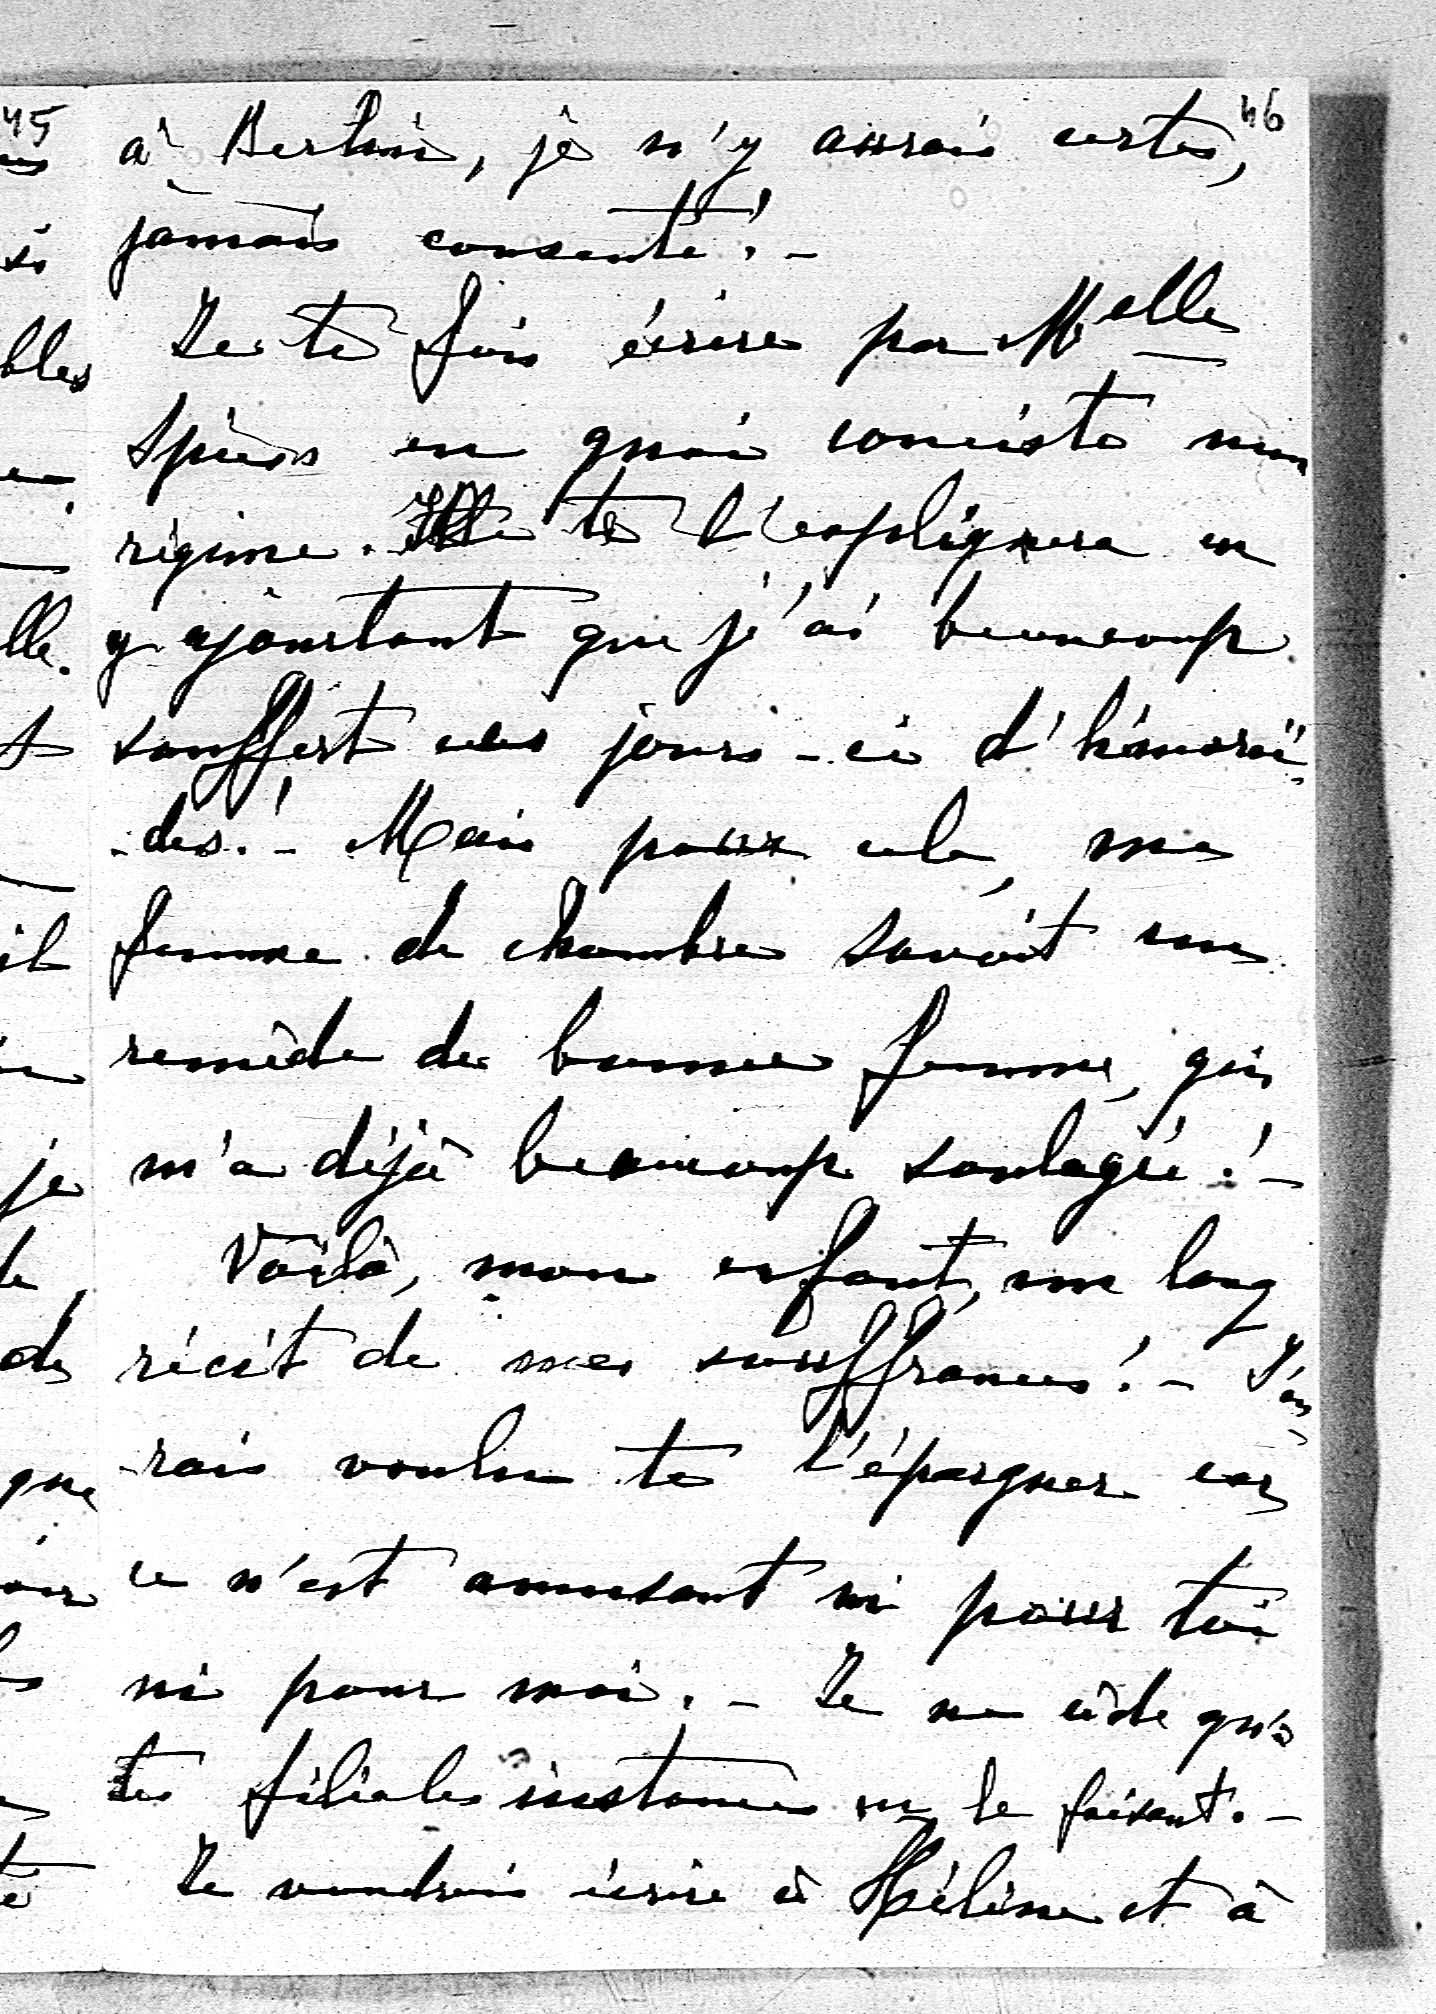 46
à Berlin, je n'y aurais certes,
jamais consenti! -
Je te fais écrire par Melle
Spiess en quoi consiste mon
régime. Elle te l'expliquera en
y ajoutant que j'ai beaucoup
souffert ces jours-ci d'hémoroï-
-des! - Mais pour cela, ma
femme de chambre savait un
remède de bonne femme, qui
m'a déjà beaucoup soulagé! -
Voilà, mon enfant, un long
récit de mes souffrances! - J'au-
rais voulu te l'épargner car
ce n'est amusant ni pour toi
ni pour moi. - Je ne cède qu'à
tes filiales instances en le faisant. -
Je voudrais écrire à Hélène et à